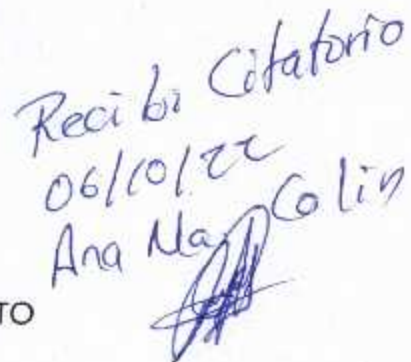 Recibi Citatorio
06/10/22
Ana Ma Colin
TO